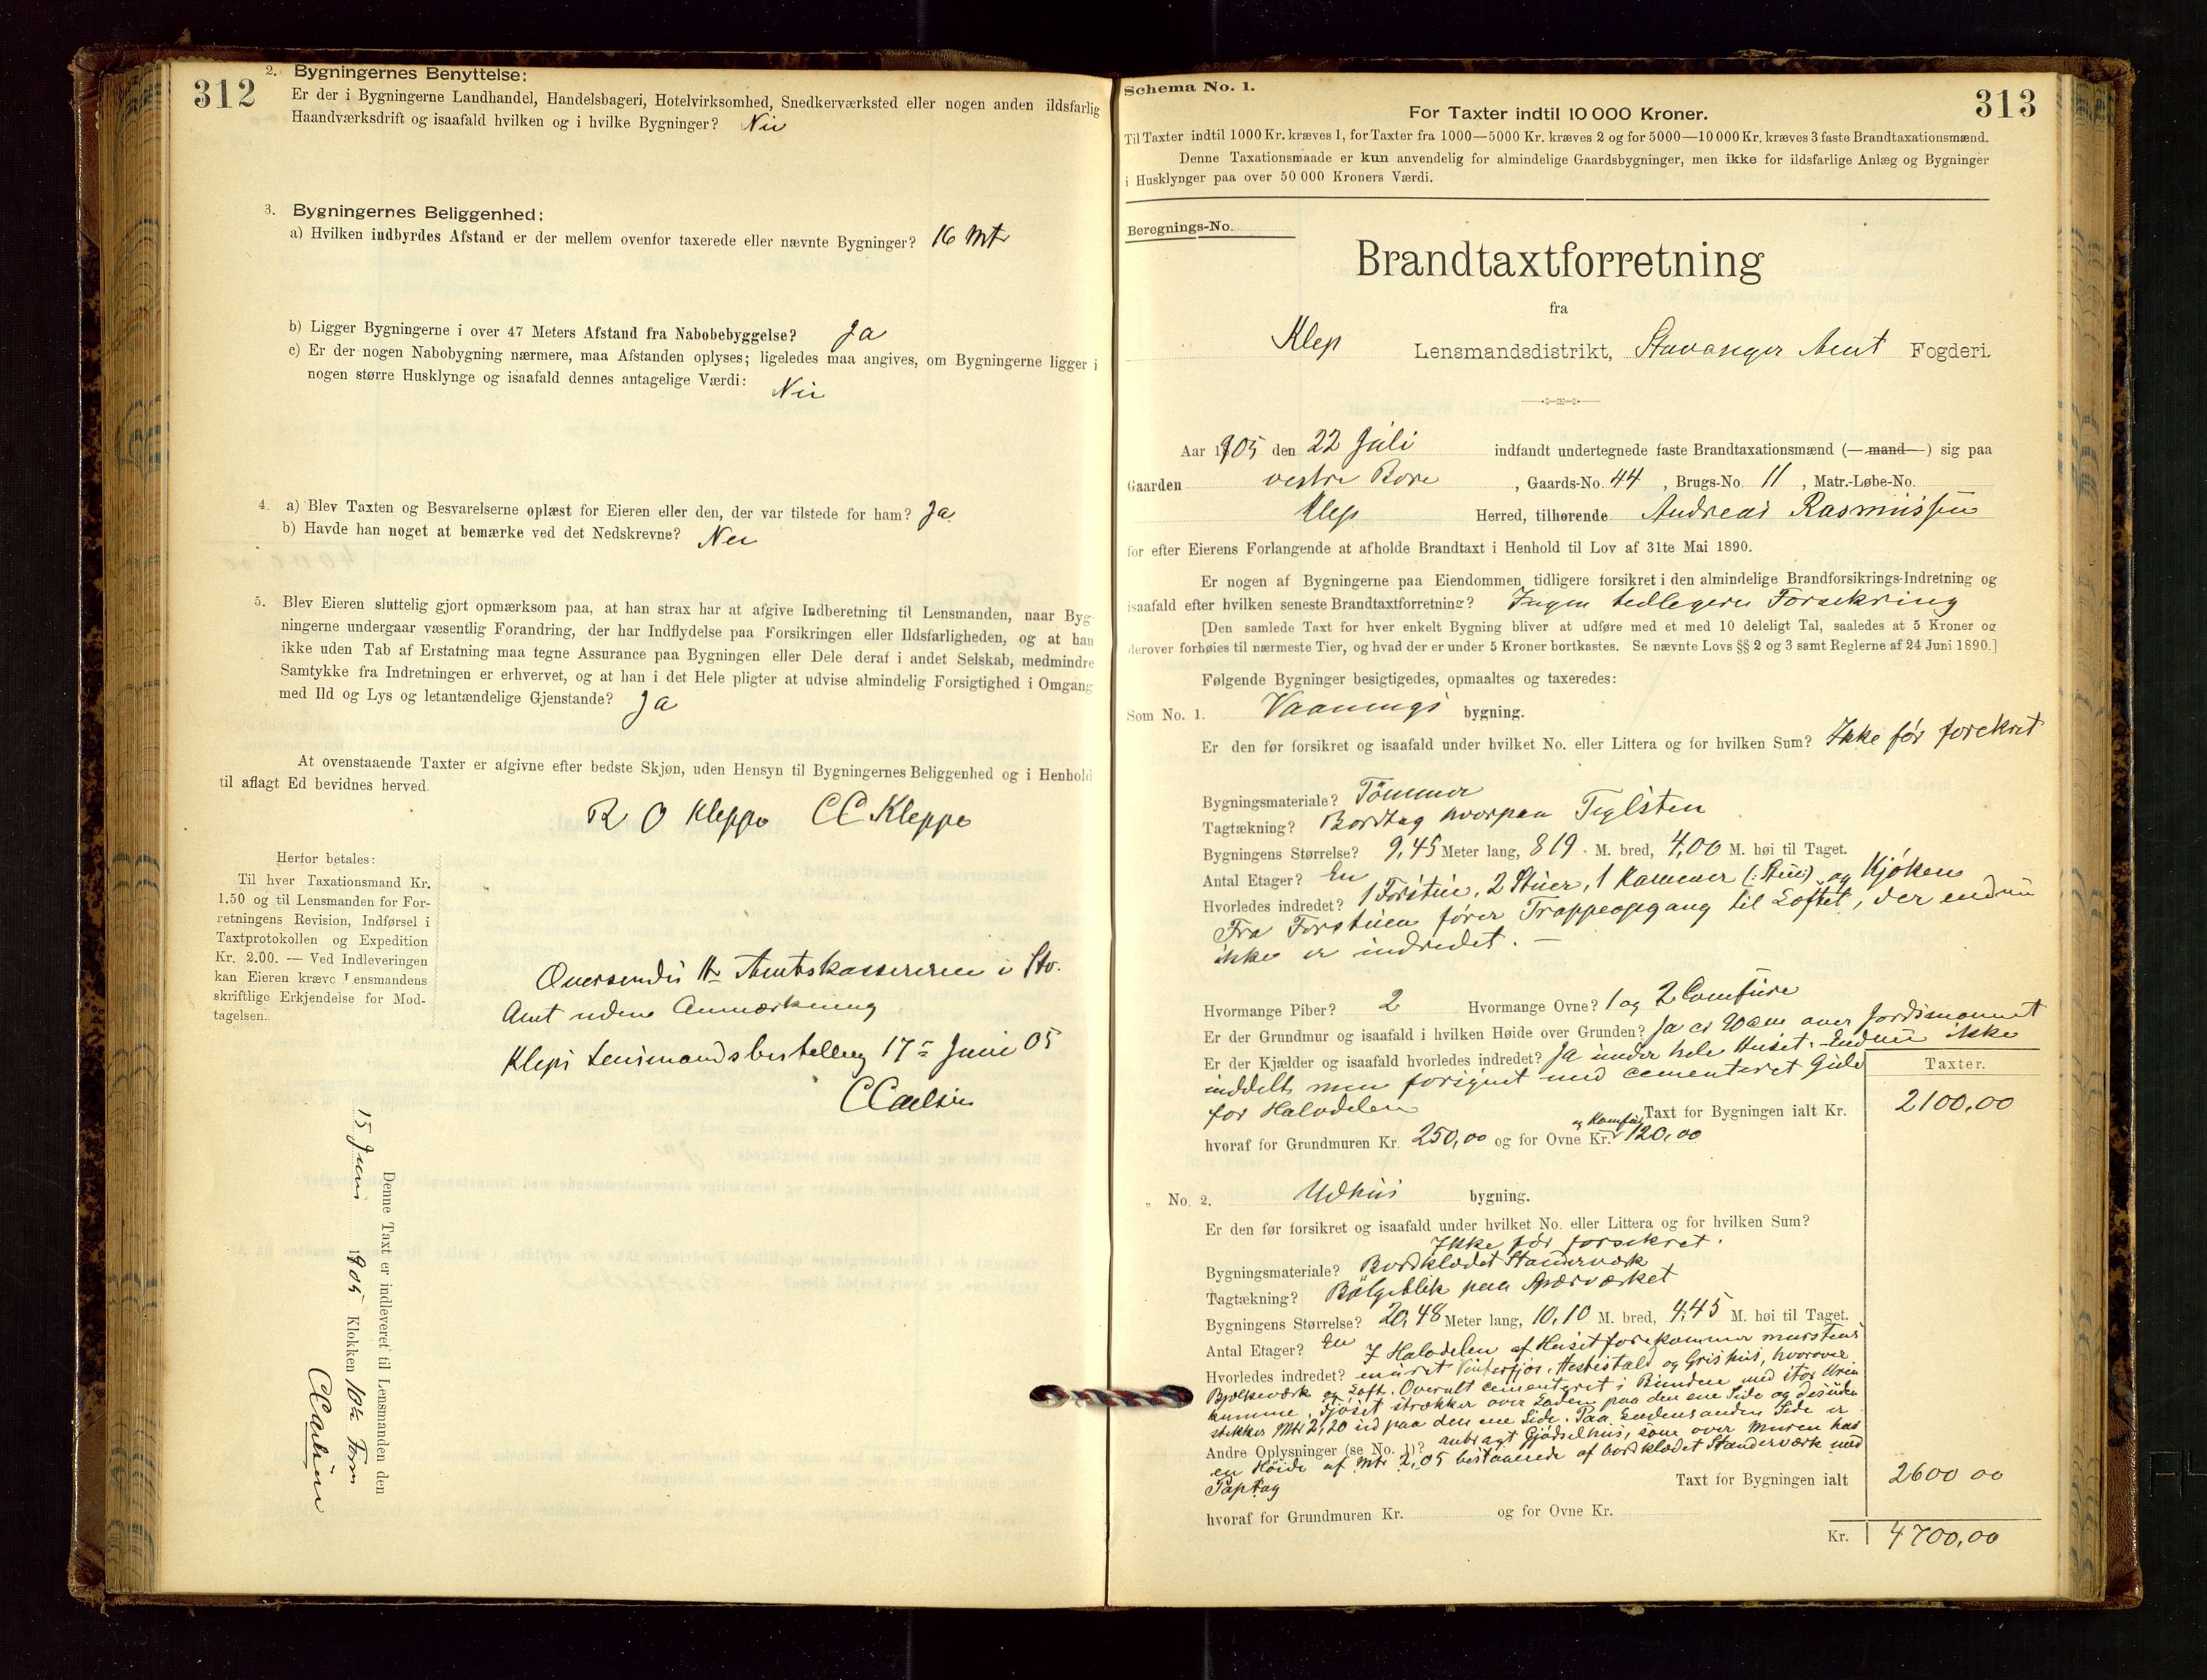 312
2. Bygningernes Benyttelse:
Er der i Bygningerne Landhandel, Handelsbageri, Hotelvirksomhed, Snedkerværksted eller nogen anden ildsfarlig
Haandværksdrift og isaafald hvilken og i hvilke Bygninger? Nei
3. Bygningernes Beliggenhed:
a) Hvilken indbyrdes Afstand er der mellem ovenfor taxerede eller nævnte Bygninger? 16 Mtr
b) Ligger Bygningerne i over 47 Meters Afstand fra Nabobebyggelse? Ja
c) Er der nogen Nabobygning nærmere, maa Afstanden oplyses; ligeledes maa angives, om Bygningerne ligger i
nogen større Husklynge og isaafald dennes antagelige Værdi: Nei
4. a) Blev Taxten og Besvarelserne oplæst for Eieren eller den, der var tilstede for ham? Ja
b) Havde han noget at bemærke ved det Nedskrevne? Nei
5. Blev Eieren sluttelig gjort opmærksom paa, at han strax har at afgive Indberetning til Lensmanden, naar Byg-
ningerne undergaar væsentlig Forandring, der har Indflydelse paa Forsikringen eller Ildsfarligheden, og at han
ikke uden Tab af Erstatning maa tegne Assurance paa Bygningen eller Dele deraf i andet Selskab, medmindre
Samtykke fra Indretningen er erhvervet, og at han i det Hele pligter at udvise almindelig Forsigtighed i Omgang
med Ild og Lys og letantændelige Gjenstande? Ja
At ovenstaaende Taxter er afgivne efter bedste Skjøn, uden Hensyn til Bygningernes Beliggenhed og i Henhold
til aflagt Ed bevidnes herved.
R O Kleppe CC Kleppe
Herfor betales:
Til hver Taxationsmand Kr.
1.50 og til Lensmanden for For-
retningens Revision, Indførsel i
Taxtprotokollen og Expedition
Kr. 2.00. — Ved Indleveringen
kan Eieren kræve Lensmandens
skriftlige Erkjendelse for Mod-
tagelsen.
Oversendes Hr Amtskassereren i Stv.
Amt uden Anmærkning
Kleps Lensmandsbestilling 17 Juni 05
CCarlsen
Denne Taxt er indleveret til Lensmanden den
15 Juni 1905 Klokken 10 Form
CCarlsen
Schema No. 1.
313
For Taxter indtil 10 000 Kroner.
Til Taxter indtil 1000 Kr. kræves 1, for Taxter fra 1000—5000 Kr. kræves 2 og for 5000—10 000 Kr. kræves 3 faste Brandtaxationsmænd.
Denne Taxationsmaade er kun anvendelig for almindelige Gaardsbygninger, men ikke for ildsfarlige Anlæg og Bygninger
i Husklynger paa over 50 000 Kroners Værdi.
Beregnings-No.
Brandtaxtforretning
fra
Klep Lensmandsdistrikt, Stavanger Amt Fogderi.
Aar 1905 den 22 Juli indfandt undertegnede faste Brandtaxationsmænd (— mand —) sig paa
Gaarden vestre Bore, Gaards-No. 44, Brugs-No. 11, Matr.-Løbe-No.
Klep Herred, tilhørende Andreas Rasmussen
for efter Eierens Forlangende at afholde Brandtaxt i Henhold til Lov af 31te Mai 1890.
Er nogen af Bygningerne paa Eiendommen tidligere forsikret i den almindelige Brandforsikrings-Indretning og
isaafald efter hvilken seneste Brandtaxtforretning? Ingen tidligere Forsikring
[Den samlede Taxt for hver enkelt Bygning bliver at udføre med et med 10 deleligt Tal, saaledes at 5 Kroner og
derover forhøies til nærmeste Tier, og hvad der er under 5 Kroner bortkastes. Se nævnte Lovs §§ 2 og 3 samt Reglerne af 24 Juni 1890.]
Følgende Bygninger besigtigedes, opmaaltes og taxeredes:
Som No. 1. Vaanings bygning.
Er den før forsikret og isaafald under hvilket No. eller Littera og for hvilken Sum? Ikke før forsikret
Bygningsmateriale? Tømmer
Tagtækning? Bordtag hvorpaa Teglsten
Bygningens Størrelse? 9,45 Meter lang, 819 M. bred, 4,00 M. høi til Taget.
Antal Etager? En
Hvorledes indredet? 1 Forstue, 2 Stuer, 1 Kammer (: Stue:) og Kjøken
Fra Forstuen fører Trappeopgang til Loftet, der endnu
ikke er indredet. —
Hvormange Piber? 2 Hvormange Ovne? 1 og 2 Comfure
Er der Grundmur og isaafald i hvilken Høide over Grunden? Ja over Jordsmonnet
Er der Kjælder og isaafald hvorledes indredet? Ja under hele Huset. Endnu ikke
inddelt, men forsynet med cementeret Gulv
for Halvdelen
Taxter.
Taxt for Bygningen ialt Kr. 2100,00
hvoraf for Grundmuren Kr. 250,00 og for Ovne og Komfur Kr. 120,00
„ No. 2. Udhus bygning.
Er den før forsikret og isaafald under hvilket No. eller Littera og for hvilken Sum?
Ikke før forsikret.
Bygningsmateriale? Bordklædet Standerværk
Tagtækning? Bølgeblik paa Spærværket
Bygningens Størrelse? 20,48 Meter lang, 10,10 M. bred, 4,45 M. høi til Taget.
Antal Etager? En I Halvdelen af Huset forekommer murstens
Hvorledes indredet? muret Vinterfjøs, Hestestald og Grishus, hvorover
Bjelkeværk og Loft. Overalt cementeret i Bunden med stor Urin
kumme. Fjøset strækker over Laden paa den ene Side og desuden
stikker Mtr 2,20 ud paa den ene Side. Paa Ladens anden Side er
Andre Oplysninger (se No. 1)? anbragt Gjødselhus, som over Muren har
en Høide af Mtr 2,05 bestaaende af bordklædet Standerværk med
Paptag
Taxt for Bygningen ialt 2600 00
hvoraf for Grundmuren Kr. og for Ovne Kr.
Kr. 4700,00